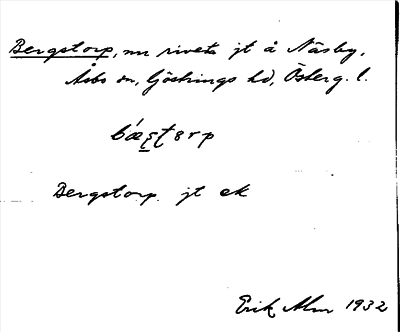 Bergstorp, nu rivet jt å Näsby,
Åsbo sn, Göstrings hd, Österg. l.
bæʂʈɵrp
Bergstorp jt ek
Erik Alm 1932